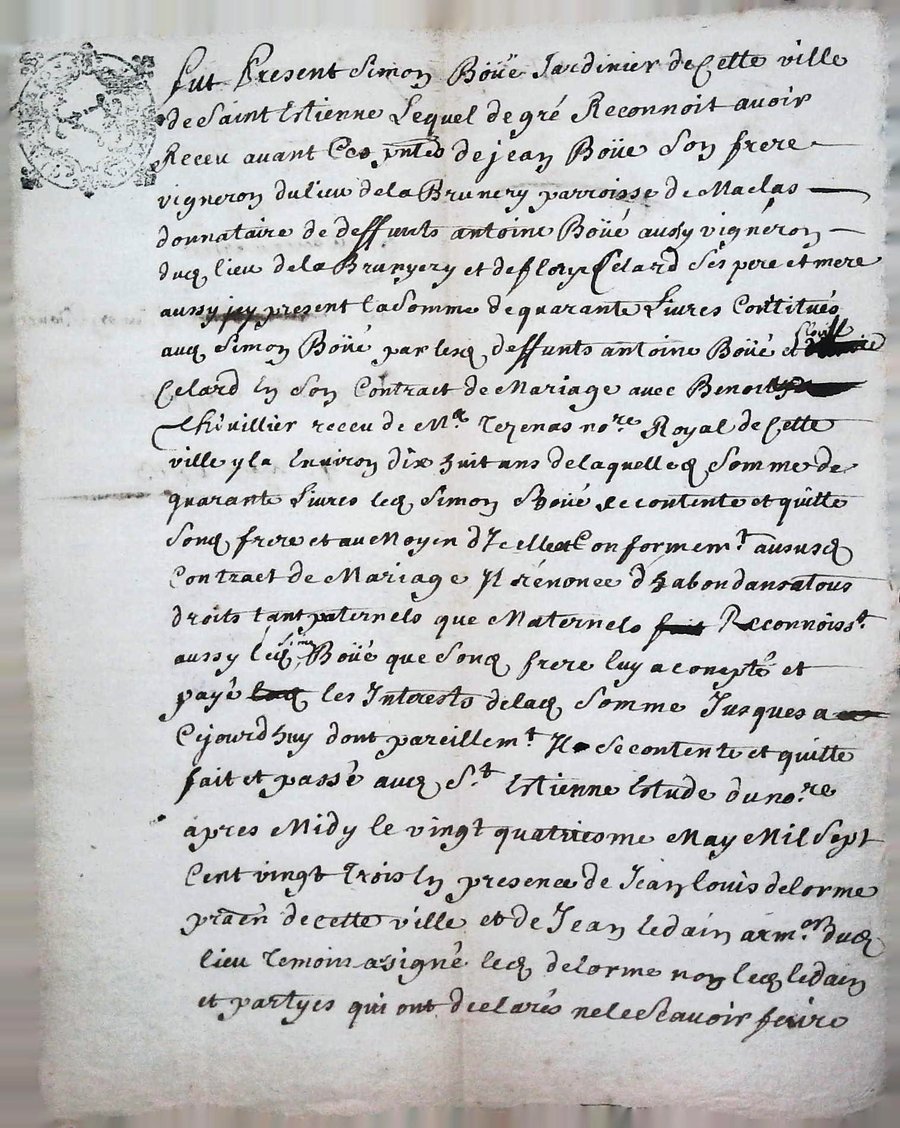 fut Present Simon Boüe Jardinier de Cette ville
de Saint Estienne Lequel de gré Reconnoit avoir
Receu avant Ces pntes de jean Boüe Son frere
vigneron du lieu de la Brunery parroisse de Maclas
donnataire de deffunts antoine Boüé aussy vigneron
dud lieu de la Brunyery et de Celard Ses pere et mere
aussy present la Somme de quarante Livres Contitués
aud Simon Boüé par lesd deffunts antoine Boüé et
Celard En Son Contract de Mariage avec
Chevillier receu de Me Tezenas nore Royal de Cette
ville y la Environ dix huit ans de laquelle d Somme de
quarante Livres led Simon Boüé se contente et quitte
Sond frere et au Moyen d'Icelle et Conformemt aususd
Contract de Mariage Il rénonce d'habondans a tous
droits tant paternels que Maternels Reconnoisst
aussy led Sime Boüé que Sond frere luy a compté et
payé les Interests de lad Somme Jusques a
Cejourdhuy dont pareillemt Il se contente et quitte
fait et passé aud St Estienne Estude du nore
apres Midy le vingt quatriesme May Mil Sept
Cent vingt Trois En presence de Jean Louis delorme
pratn de cette ville et de Jean ledain armer dud
lieu Temoins a signé led delorme non led ledain
et partyes qui ont declarés ne le Scavoir faire